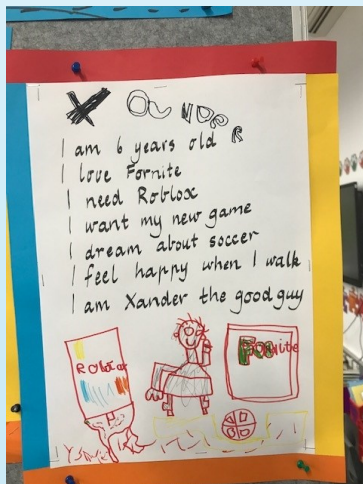 I am 6 years old
I love Fornite
I need Roblox
I want my new game
I dream about soccer
I feel happy when I walk
I am Xander the good guy